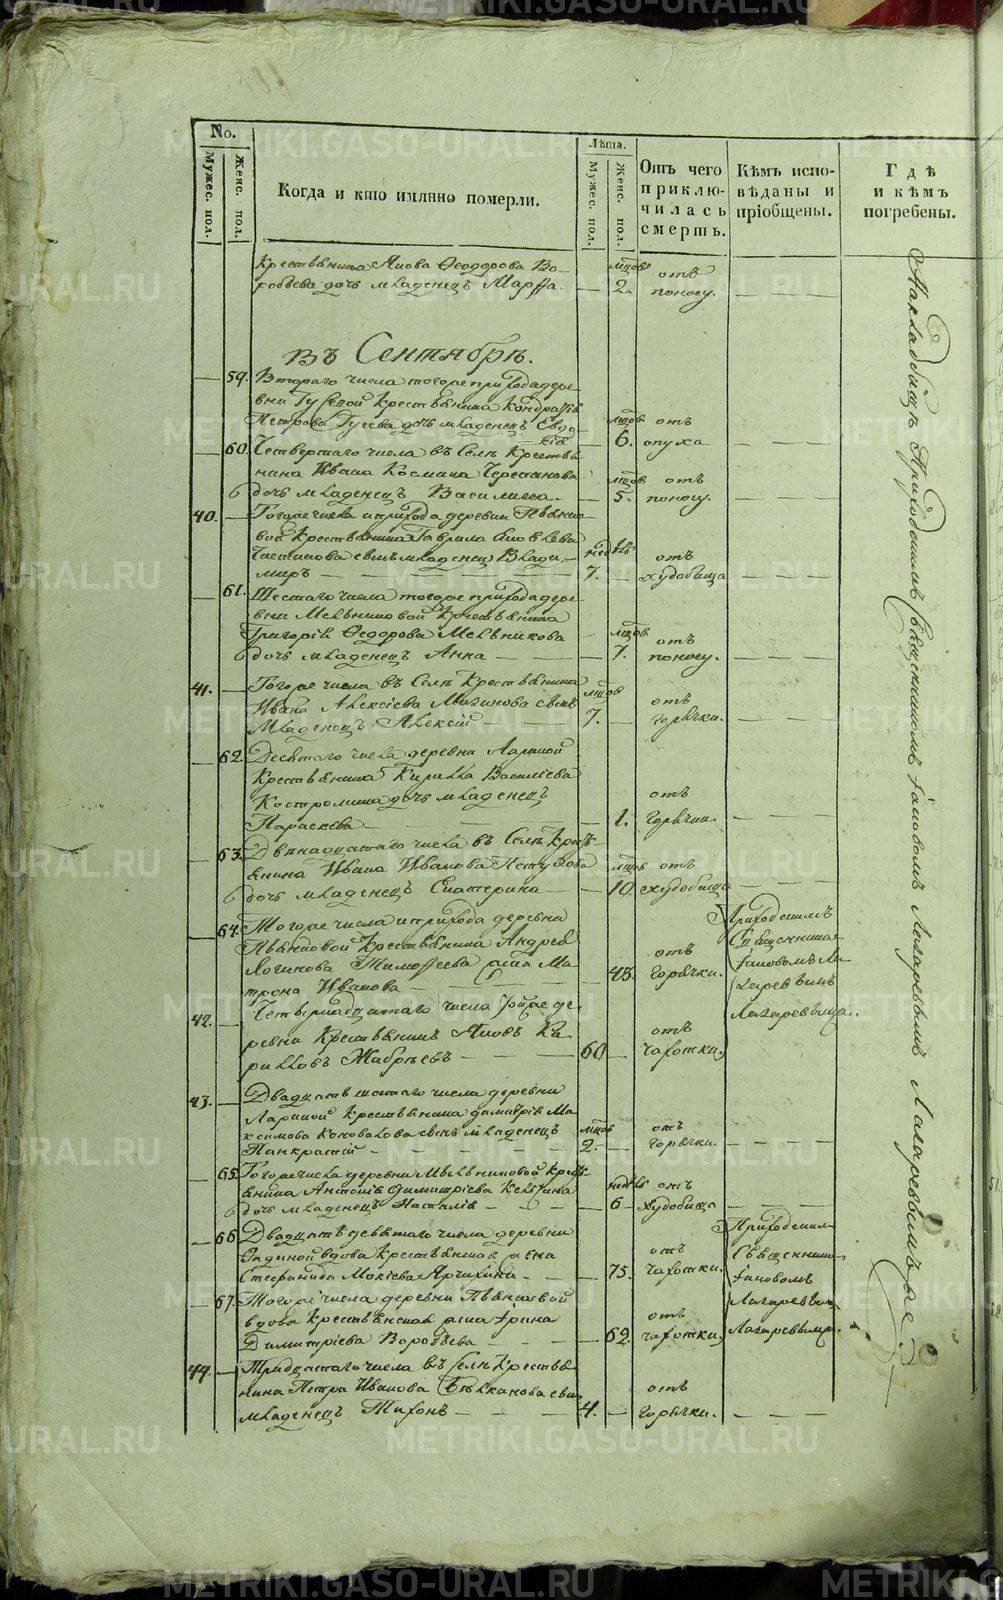 No.
Мужес. пол.
Женс. пол.
Когда и кто имянно померли.
Лѣта.
Мужес. пол.
Женс. пол.
Отъ чего
приклю-
чилась
смерть.
Кѣмъ испо-
вѣданы и
пріобщены.
Гдѣ
и кѣмъ
погребены.
Крестьянина Якова Ѳеодорова Во-
робьева дочь младенецъ Марѳа. мцовъ 2. отъ поносу.
Въ Сентябрѣ.
59. Втораго числа тогоже прихода дере-
вни Гусевой крестьянина Кондратія
Петрова Гусева дочь младенецъ Евдо-
кія мцовъ 6. отъ опуха
60. Четвертаго числа въ Селѣ крестья-
нина Ивана Космина
дочь младенецъ Василиса. мцовъ 5. отъ поносу.
40. Тогоже числа и прихода деревни Пьянко-
вой крестьянина Гаврила
сынъ младенецъ Влади-
миръ недѣль 7. отъ худобища
61. Шестаго числа тогоже прихода дере-
вни Мельниковой крестьянина
Григорія Ѳедорова Мельникова
дочь младенецъ Анна мцовъ 7. отъ поносу.
41. Тогоже числа въ Селѣ крестьянина
Ивана Алексіева сынъ
младенецъ Алексій мцовъ 7. отъ горячки.
62. Десятаго числа деревни Лариной
крестьянина Кирилла Василіева
Костромина дочь младенецъ
Параскева 1. отъ горячки.
63. Двенадцатаго числа въ Селѣ крест-
янина Ивана Иванова Петухова
дочь младенецъ Екатерина мцовъ 10. отъ худобища
64. Тогоже числа и прихода деревни
Пьянковой крестьянина Андрея
Логинова Тимоѳеева жена Ма-
трона Иванова 43. отъ горячки. Приходскимъ
Священнико-
Іаковомъ Ла-
заревымъ
Лазаревымъ.
42. Четвернадцатаго числа тойже де-
ревни крестьянинъ Яковъ Ки-
рилловъ Жабреевъ 60 отъ чахотки.
43. Двадцать шестаго числа деревни
Лариной крестьянина Димитрія Ма-
ксимова Коновалова сынъ младенецъ
Панкратій мцовъ 2. отъ горячки.
65. Тогоже числа деревни Мельниковой крест-
янина Антонія Димитріева
дочь младенецъ Наталія недѣль 6 отъ худобища
66. Двадцать девятаго числа деревни
вдова крестьянская жена
Стефанида Мокіева 75. отъ чахотки. Приходским-
Священнико-
Іаковомъ
Лазаревым-
Лазаревымъ.
67. Тогоже числа деревни Пьянковой
вдова крестьянская жена Ирина
Димитріева Воробьева 62. отъ чахотки.
44. Тридцатаго числа въ Селѣ крестья-
нина Петра Иванова сынъ
младенецъ Тихонъ 4. отъ горячки.
На кладбищѣ Приходскимъ Священникомъ Іаковомъ Лазаревымъ Лазаревымъ же.
METRIKI.GASO-URAL.RU